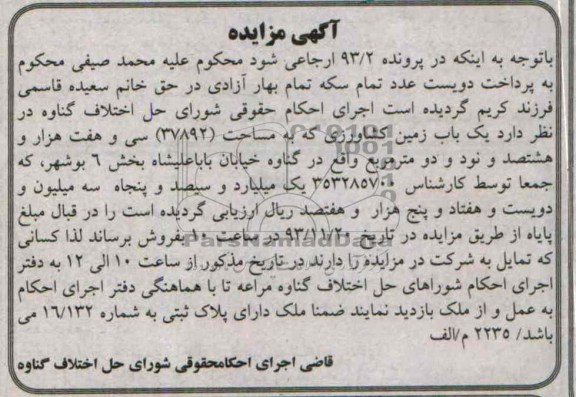 آگهی مزایده
باتوجه به اینکه در پرونده ۹۳/۲ ارجاعی شود محکوم علیه محمد صیفی محکوم
به پرداخت دویست عدد تمام سکه تمام بهار آزادی در حق خانم سعیده قاسمی
فرزند کریم گردیده است اجرای احکام حقوقی شورای حل اختلاف گناوه در
نظر دارد یک باب زمین کشاورزی که به مساحت (۳۷/۸۹۲) سی و هفت هزار و
هشتصد و نود و دو مترمربع واقع در گناوه خیابان باباعلیشاه بخش ۶ بوشهر، که
جمعا توسط کارشناس ۳۵۳۲۸۵۷۰۰ یک میلیارد و سیصد و پنجاه سه میلیون و
دویست و هفتاد و پنج هزار و هفتصد ریال ارزیابی گردیده است را در قبال مبلغ
پایاه از طریق مزایده در تاریخ ۹۳/۱۱/۲۰ در ساعت ۱۰ بفروش برساند لذا کسانی
که تمایل به شرکت در مزایده را دارند در تاریخ مذکور از ساعت ۱۰ الی ۱۲ به دفتر
اجرای احکام شوراهای حل اختلاف گناوه مراعه تا با هماهنگی دفتر اجرای احکام
به عمل و از ملک بازدید نمایند ضمنا ملک دارای پلاک ثبتی به شماره ۱۶/۱۳۲ می
باشد/ ۲۲۳۵ م/الف
قاضی اجرای احکامحقوقی شورای حل اختلاف گناوه
ParsNamadData